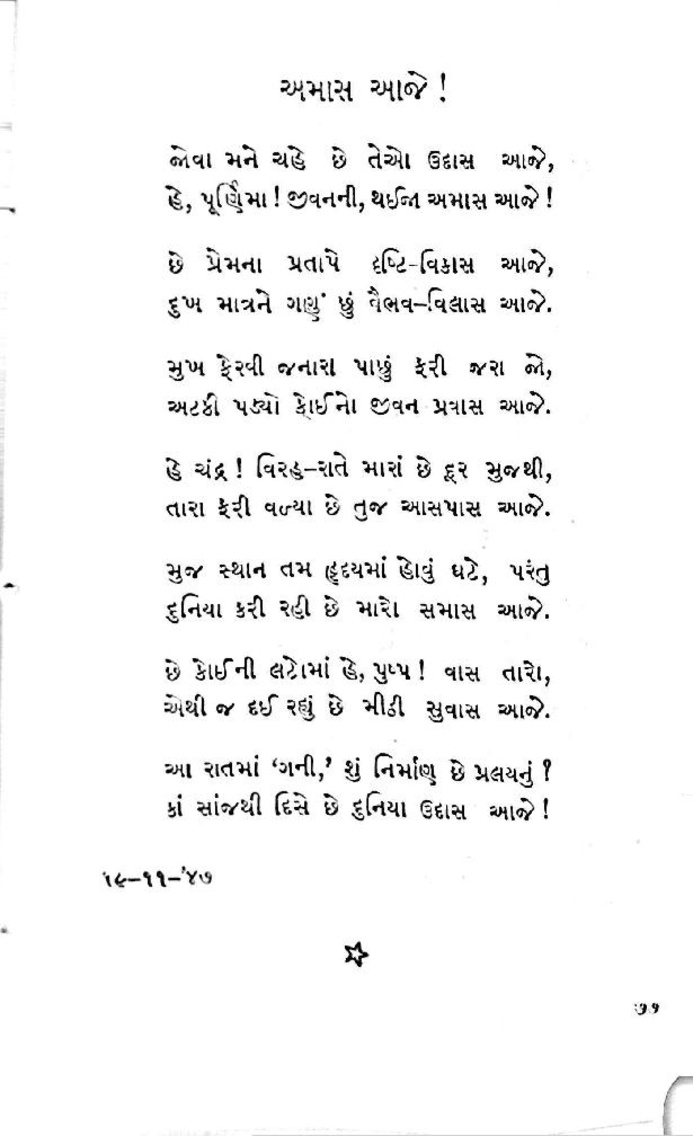 અમાસ આજે !
જોવા મને ચહે છે તેઓ ઉદાસ આજે,
હે, પૂર્ણિમા ! જીવનની, થઈજા અમાસ આજે !
છે પ્રેમના પ્રતાપે દૃષ્ટિ-વિકાસ આજે,
દુખ માત્રને ગણું છું વૈભવ-વિલાસ આજે.
મુખ ફેરવી જનારા પાછું ફરી જરા જો,
અટકી પડ્યો કોઈનો જીવન પ્રવાસ આજે.
હે ચંદ્ર ! વિરહ-રાતે મારાં છે દૂર મુજથી,
તારા ફરી વળ્યા છે તુજ આસપાસ આજે.
મુજ સ્થાન તમ હૃદયમાં હોવું ઘટે, પરંતુ
દુનિયા કરી રહી છે મારો સમાસ આજે.
છે કોઈની લટોમાં હે, પુષ્પ ! વાસ તારો,
એથી જ દઈ રહ્યું છે મીઠી સુવાસ આજે.
આ રાતમાં ‘ગની,’ શું નિર્માણ છે પ્રલયનું ?
કાં સાંજથી દિસે છે દુનિયા ઉદાસ આજે !
૧૯-૧૧-'૪૭
૭૧